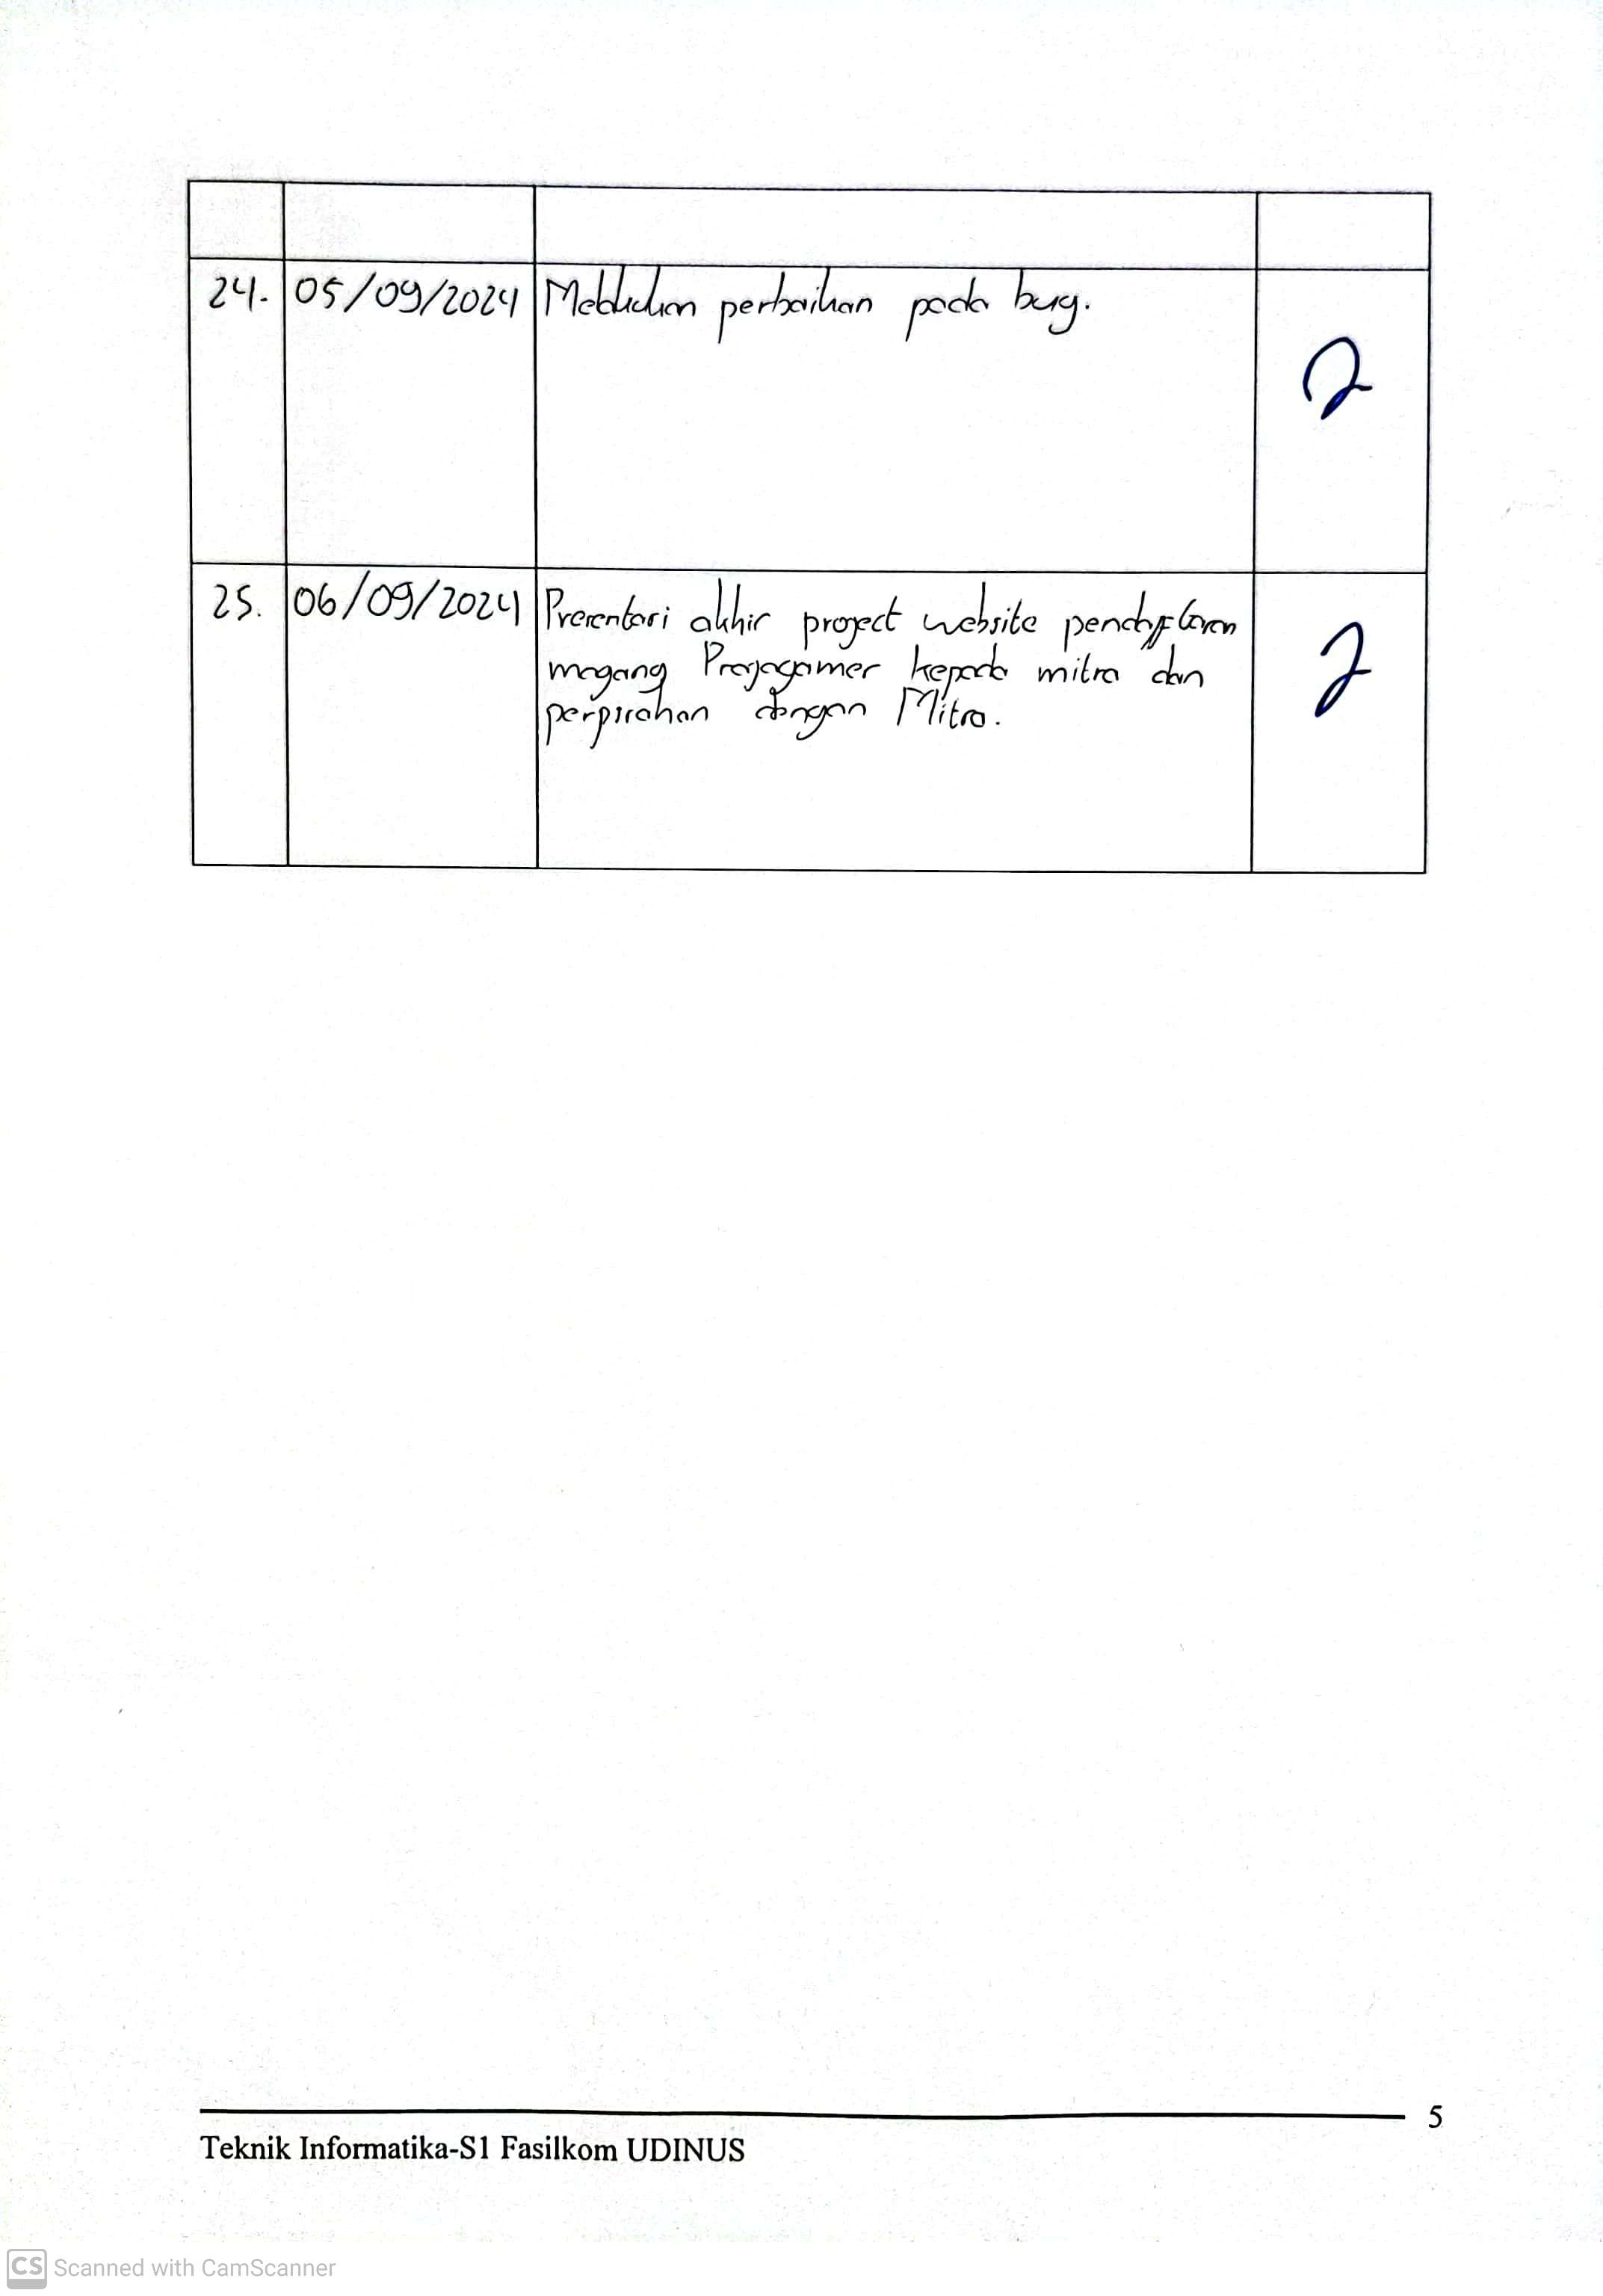 24. 05/09/2024 Melakukan perbaikan pada bug.
25. 06/09/2024 Presentasi akhir project website pendaftaran
magang Prajagamer kepada mitra dan
perpisahan dengan Mitra.
5
Teknik Informatika-S1 Fasilkom UDINUS
CS Scanned with CamScanner